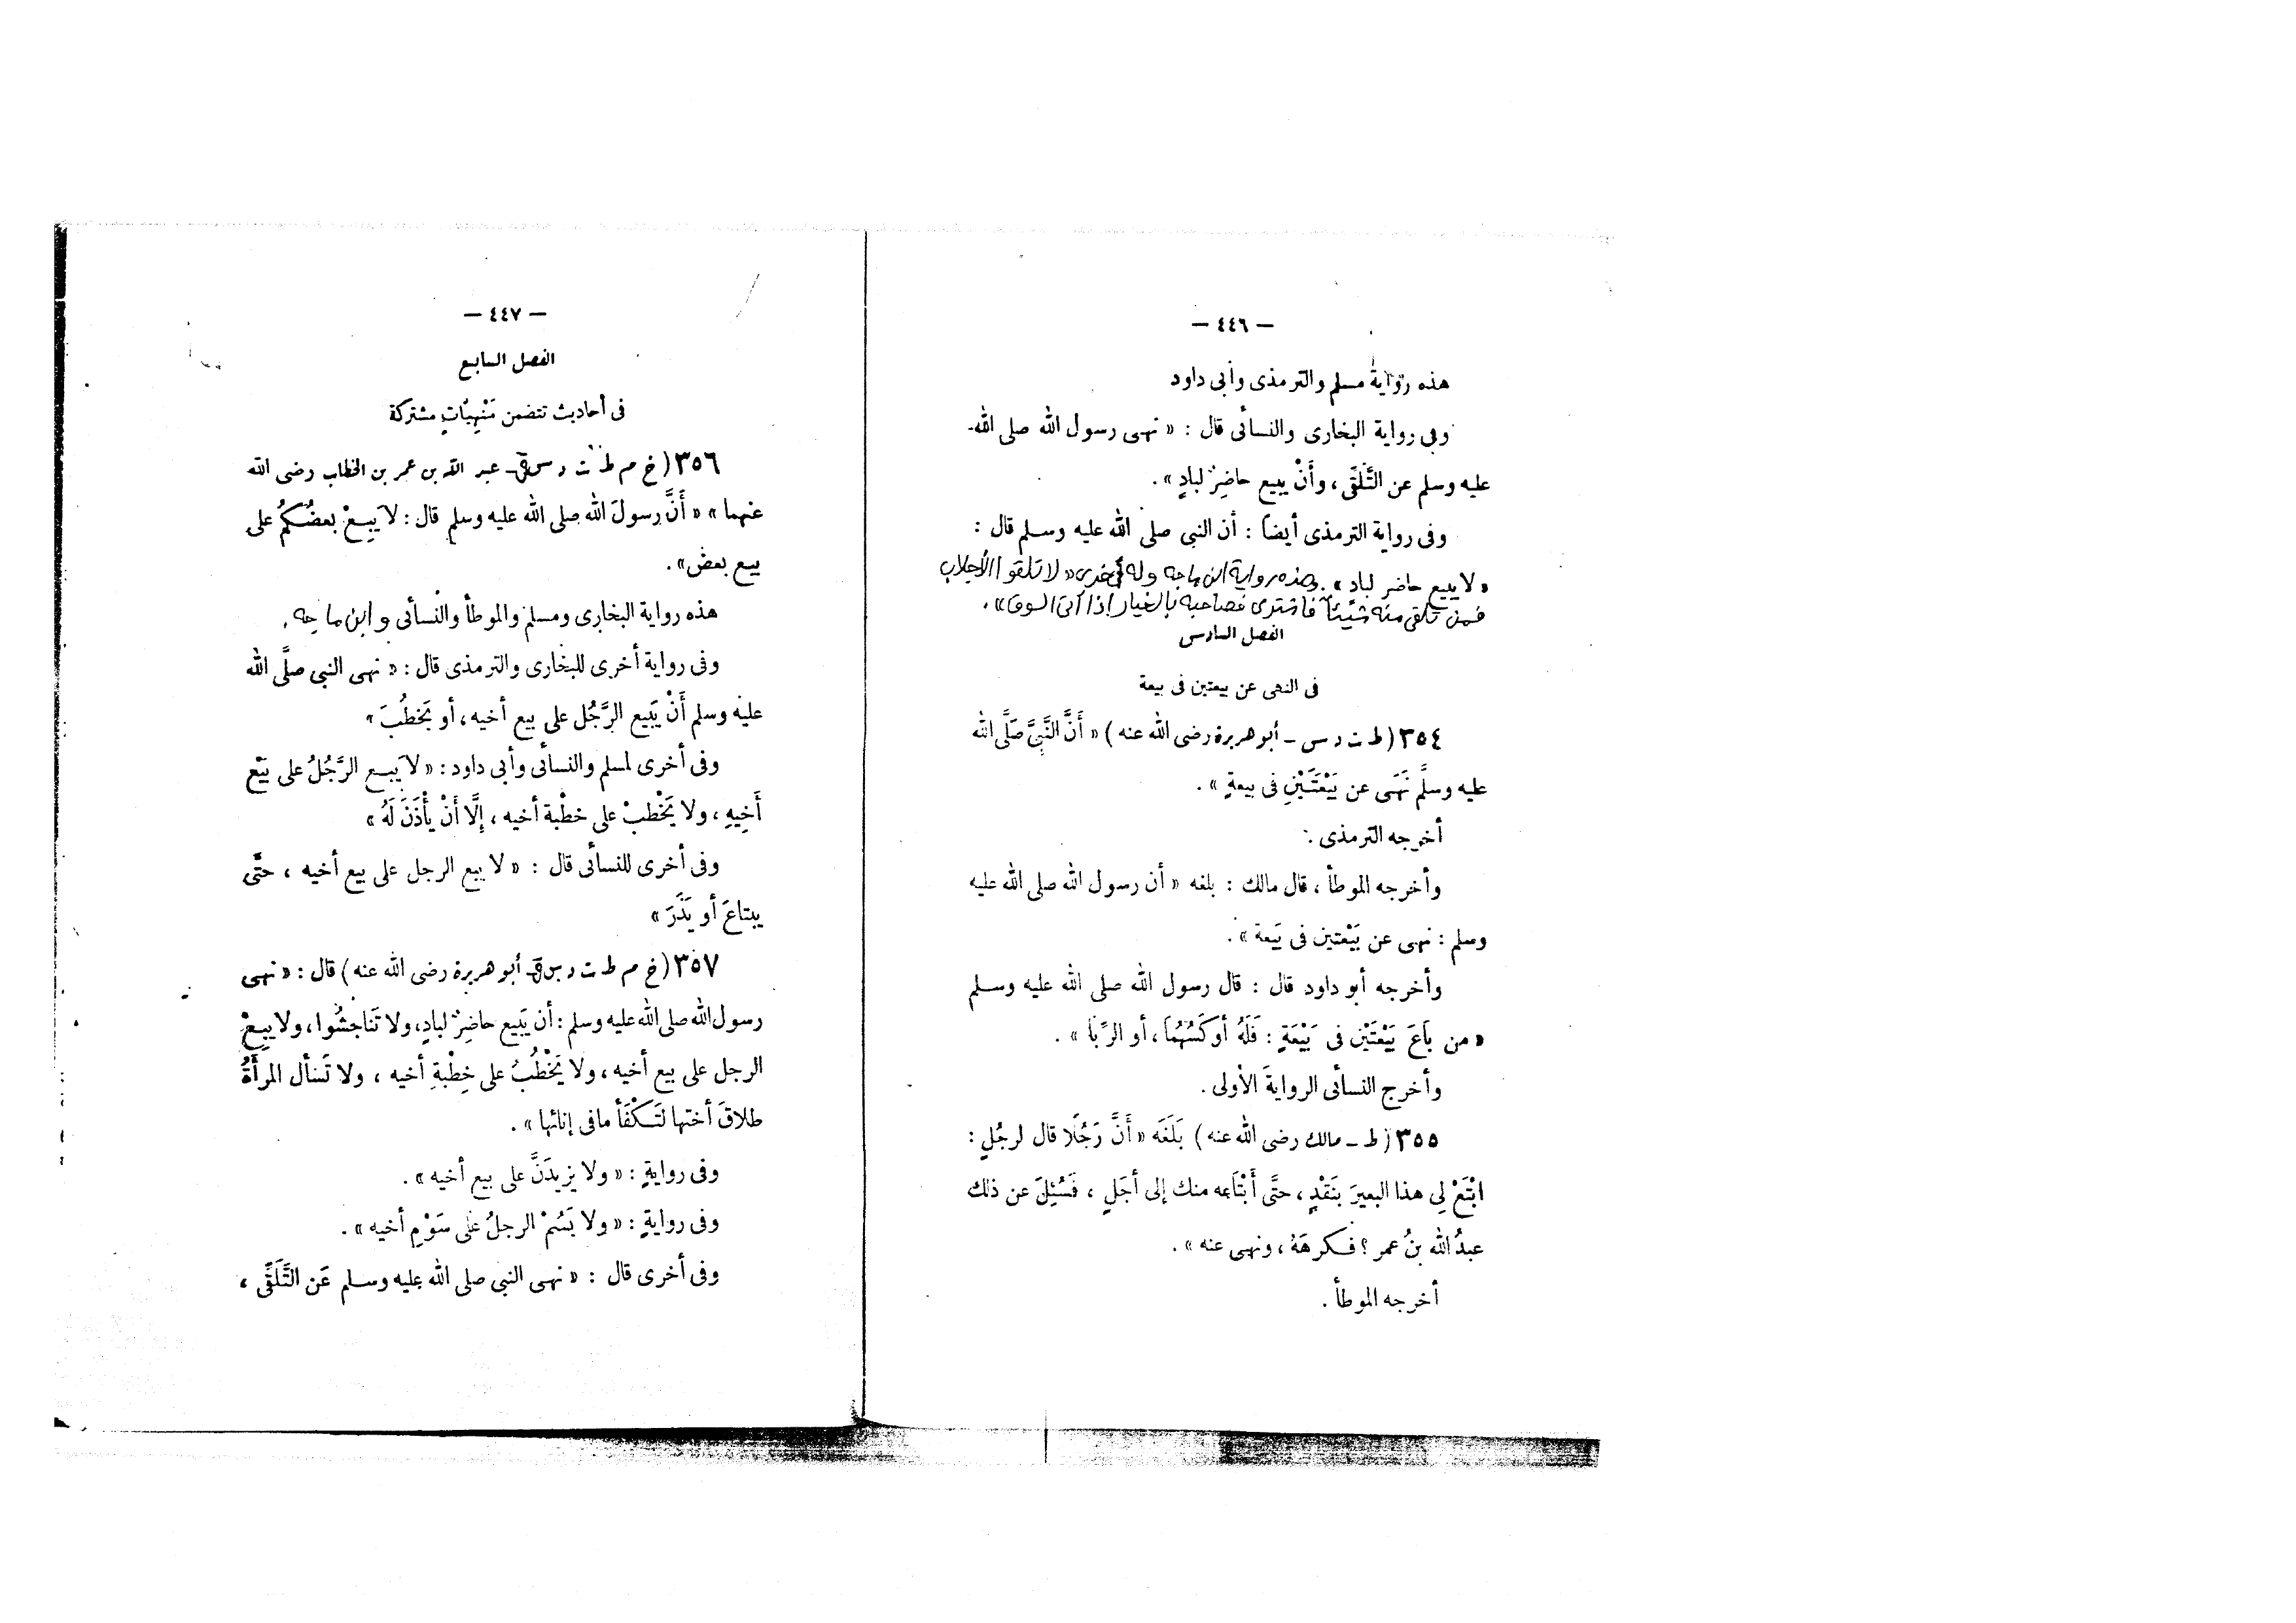 — ٤٤٦ —
هذه رواية مسلم والترمذى وأبى داود
وفى رواية البخارى والنسائى قال : « نهى رسول الله صلى الله
عليه وسلم عن التَّلقَّى ، وأَنْ يبيع حاضِرٌ لبادٍ » .
وفى رواية الترمذى أيضاً : أن النبى صلى الله عليه وسلم قال :
« لا يبيع حاضر لبادٍ » . وهذه رواية ابن ماجه وله أخرى « لا تلقوا الأجلاب
فمن تلقى منه شيئاً فاشترى فصاحبه بالخيار إذا أتى السوق » .
الفصل السادس
فى النهى عن بيعتين فى بيعة
٣٥٤ ( ط ت د س – أبو هريرة رضى الله عنه ) « أَنَّ النَّبِىَّ صَلَّى الله
عليه وسلَّم نَهَى عن بَيْعَتَيْنِ فى بيعةٍ » .
أخرجه الترمذى .
وأخرجه الموطأ ، قال مالك : بلغه « أن رسول الله صلى الله عليه
وسلم : نهى عن بَيْعتين فى بَيعة » .
وأخرجه أبو داود قال : قال رسول الله صلى الله عليه وسلم
« من بَاعَ بَيْعَتَيْن فى بَيْعَةٍ : فَلَهُ أوكَسُهُمَا ، أو الرِّبَا » .
وأخرج النسائى الروايةَ الأولى .
٣٥٥ ( ط – مالك رضى الله عنه ) بَلَغَه « أَنَّ رَجُلًا قال لرجُلٍ :
ابْتَعْ لِى هذا البعيرَ بنَقْدٍ ، حتَّى أَبْتَاعه منك إلى أجَلٍ ، فَسُئِلَ عن ذلك
عبدُ الله بنُ عمر ؟ فكرهَهُ ، ونهى عنه » .
أخرجه الموطأ .
— ٤٤٧ —
الفصل السابع
فى أحاديث تتضمن مَنْهِيَّاتٍ مشتركة
٣٥٦ ( خ م ط ت د س ق – عبد الله بن عمر بن الخطاب رضى الله
عنهما » « أَنَّ رسولَ الله صلى الله عليه وسلم قال : لا يَبِعْ بعضُكُمُ على
بيع بعض » .
هذه رواية البخارى ومسلم والموطأ والنسائى وابن ماجه .
وفى رواية أخرى للبخارى والترمذى قال : « نهى النبى صلَّى الله
عليه وسلم أَنْ يَبيع الرَّجُل على بيع أخيه ، أو يَخطُبَ »
وفى أخرى لمسلم والنسائى وأبى داود : « لا يَبِع الرَّجُلُ على بَيْع
أَخِيهِ ، ولا يَخْطبْ على خطْبة أخيه ، إلَّا أَنْ يأْذَنَ لَهُ »
وفى أخرى للنسائى قال : « لا يبع الرجل على بيع أخيه ، حتَّى
يبتاعَ أو يَذَرَ »
٣٥٧ ( خ م ط ت د س ق – أبو هريرة رضى الله عنه ) قال : « نهى
رسول الله صلى الله عليه وسلم : أن يَبيع حاضِرٌ لبادٍ ، ولا تَناجشُوا ، ولا يبِعْ
الرجل على بيع أخيه ، ولا يَخْطُبُ على خِطْبةِ أخيه ، ولا تَسأل المرأَةُ
طلاقَ أختها لتَكْفَأ مافى إنائها » .
وفى روايةٍ : « ولا يزيدَنَّ على بيع أخيه » .
وفى روايةٍ : « ولا يَسُمْ الرجلُ على سَوْمِ أخيه » .
وفى أخرى قال : « نهى النبى صلى الله عليه وسلم عَن التَّلَقِّى ،